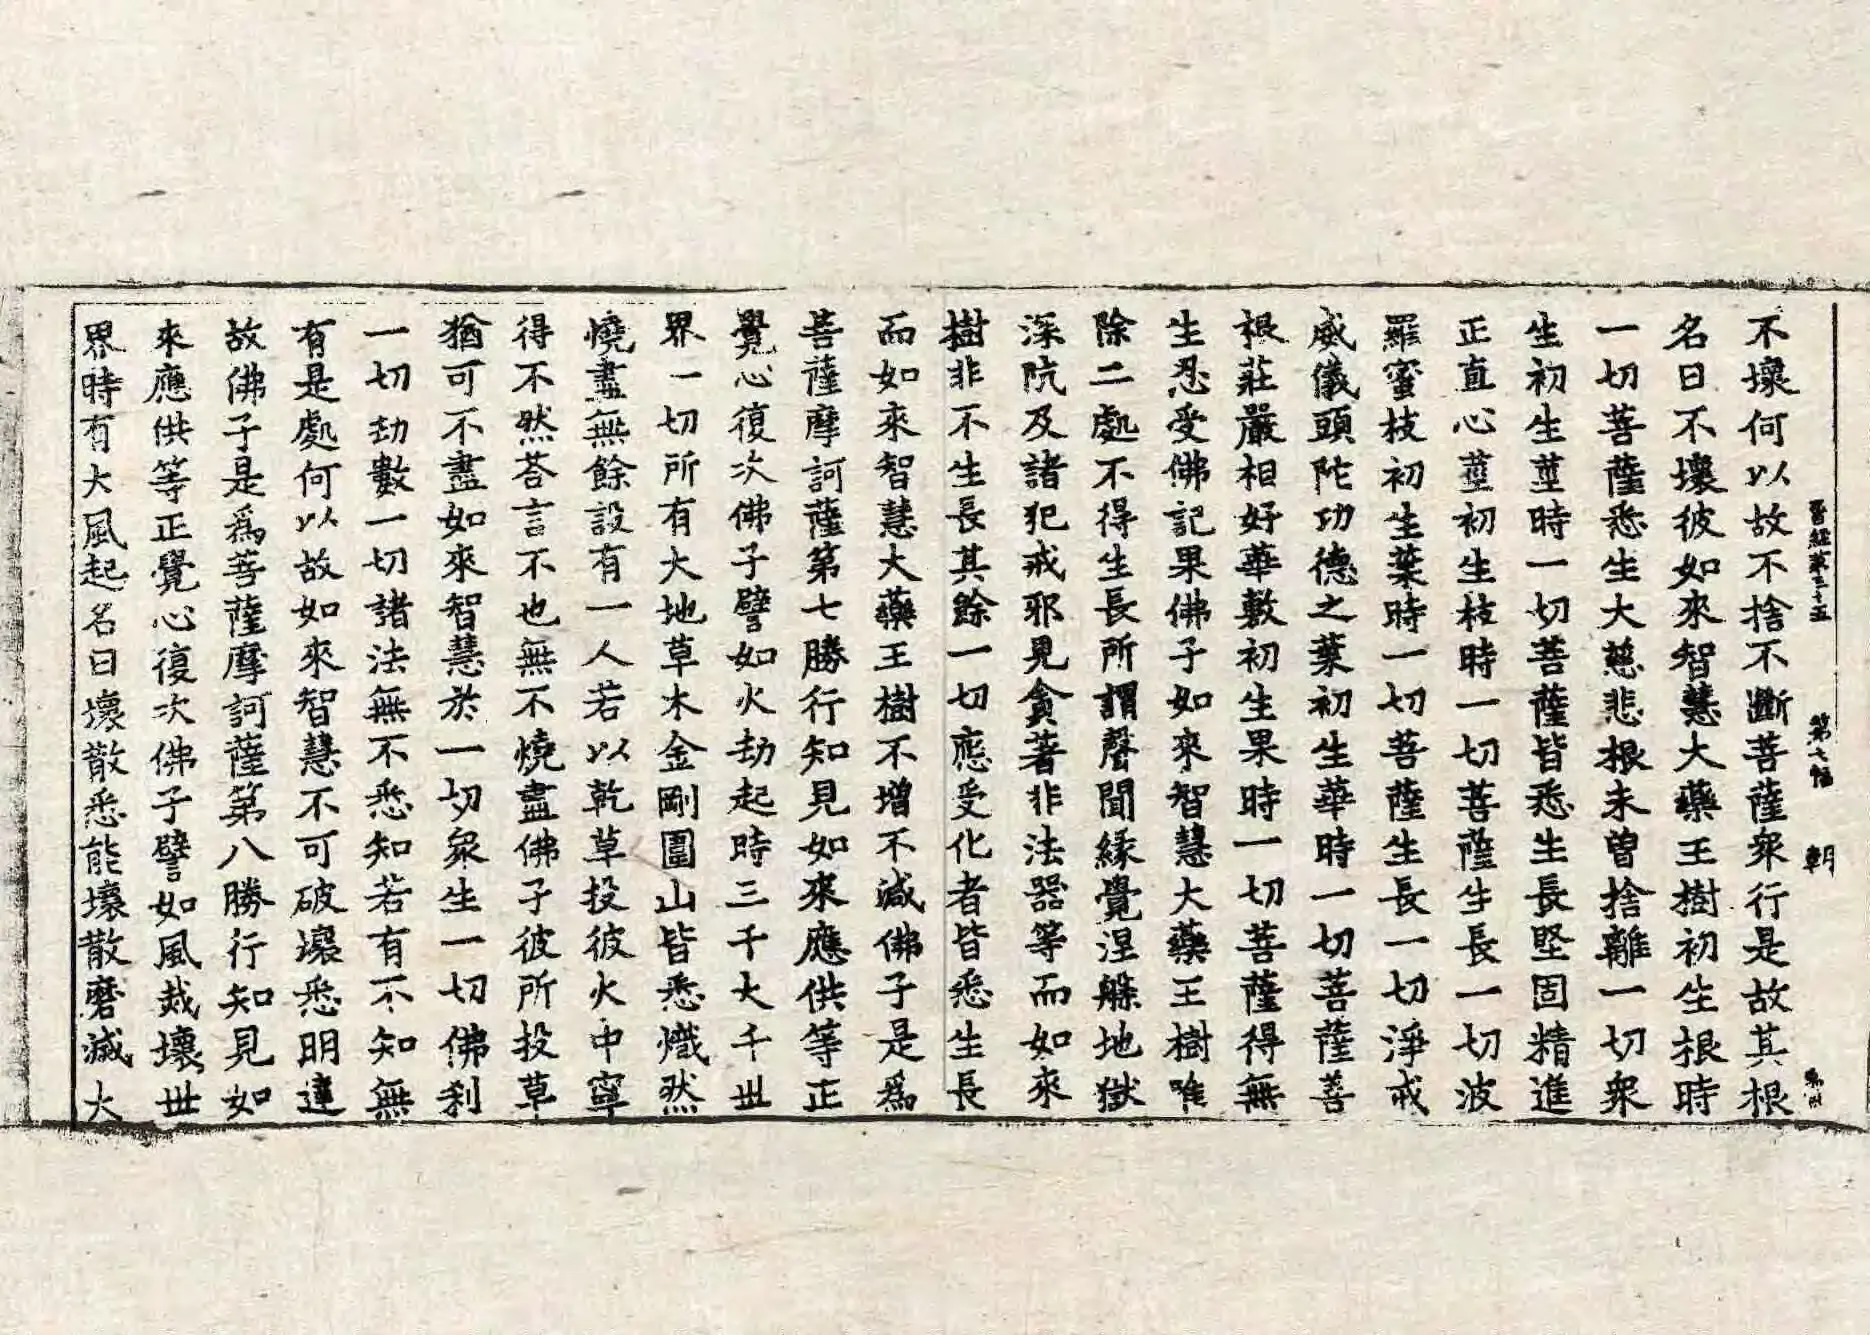 晋經第三十五 第七幅 朝
不壞何以故不捨不斷菩薩衆行是故其根
名曰不壞彼如來智慧大藥王樹初生根時
一切菩薩悉生大慈悲根未曾捨離一切衆
生初生莖時一切菩薩皆悉生長堅固精進
正直心莖初生枝時一切菩薩生長一切波
羅蜜枝初生葉時一切菩薩生長一切淨戒
威儀頭陀功德之葉初生華時一切菩薩善
根莊嚴相好華敷初生果時一切菩薩得無
生忍受佛記果佛子如來智慧大藥王樹唯
除二處不得生長所謂聲聞緣覺涅槃地獄
深阬及諸犯戒邪見貪著非法器等而如來
樹非不生長其餘一切應受化者皆悉生長
而如來智慧大藥王樹不增不減佛子是爲
菩薩摩訶薩第七勝行知見如來應供等正
覺心復次佛子譬如火劫起時三千大千世
界一切所有大地草木金剛圍山皆悉熾然
燒盡無餘設有一人若以乾草投彼火中寧
得不然荅言不也無不燒盡佛子彼所投草
猶可不盡如來智慧於一切衆生一切佛刹
一切劫數一切諸法無不悉知若有不知無
有是處何以故如來智慧不可破壞悉明達
故佛子是爲菩薩摩訶薩第八勝行知見如
來應供等正覺心復次佛子譬如風烖壞世
界時有大風起名曰壞散悉能壞散磨滅大